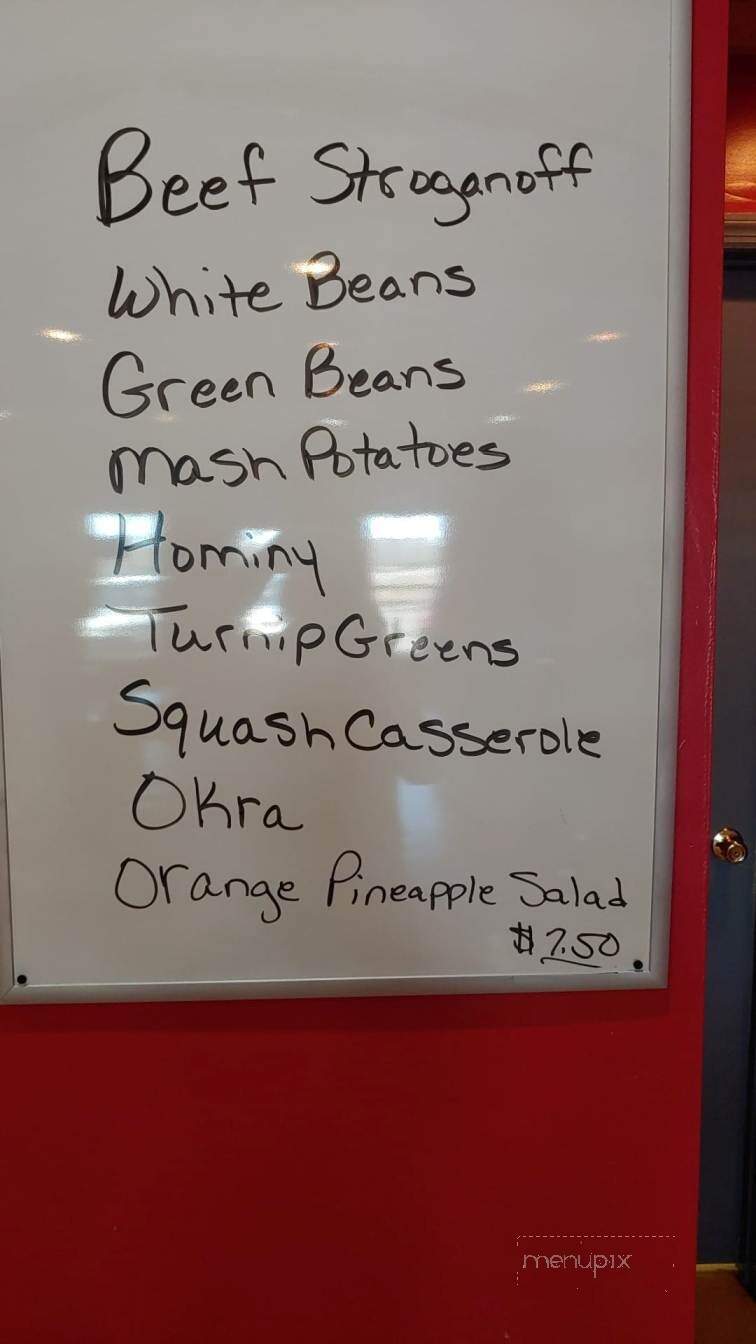 Beef Stroganoff
White Beans
Green Beans
Mash Potatoes
Hominy
Turnip Greens
Squash Casserole
Okra
Orange Pineapple Salad
$7.50
menupix